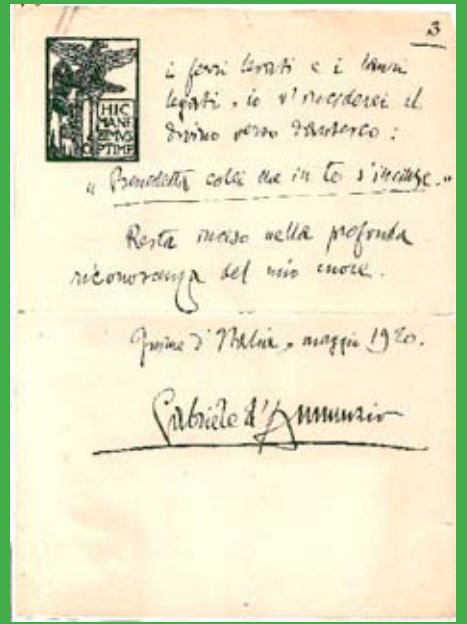 3
HIC
MANE
BIMVS
OPTIME
i ferri levati e i lauri
legati, io v'inciderei il
divino verso dantesco:
"Benedetta colei che in te s'incinse."
Resta inciso nella profonda
riconoscenza del mio cuore.
Fiume d'Italia, maggio 1920.
Gabriele d'Annunzio